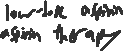 low-dose aspirin
aspirin therapy